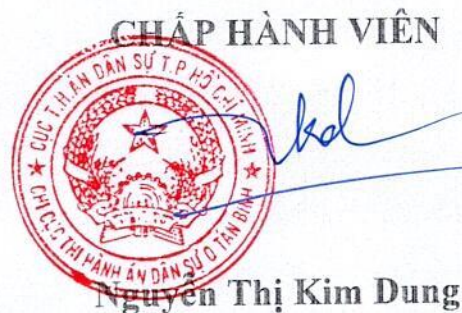 CHẤP HÀNH VIÊN
CỤC T.H.ÁN DÂN SỰ T.P HỒ CHÍ MINH
CHI CỤC THI HÀNH ÁN DÂN SỰ Q TÂN BÌNH
kd
Nguyễn Thị Kim Dung